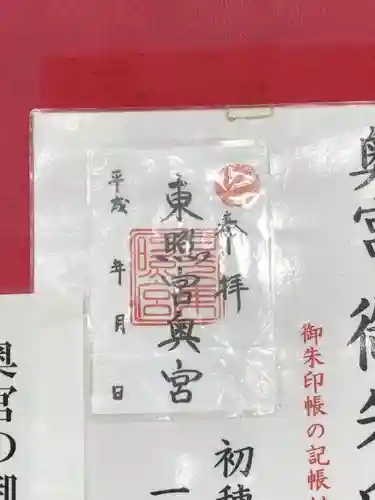 奥宮 御朱印
御朱印帳の記帳
初穂
一
奉拝
東照宮奥宮
平成 年 月 日
奥宮の御